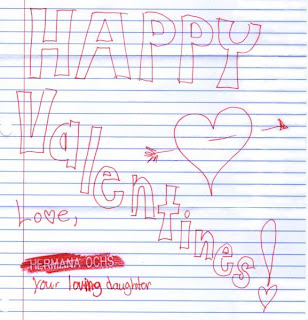 HAPPY
Valentines!
Love,
HERMANA OCHS
Your loving daughter